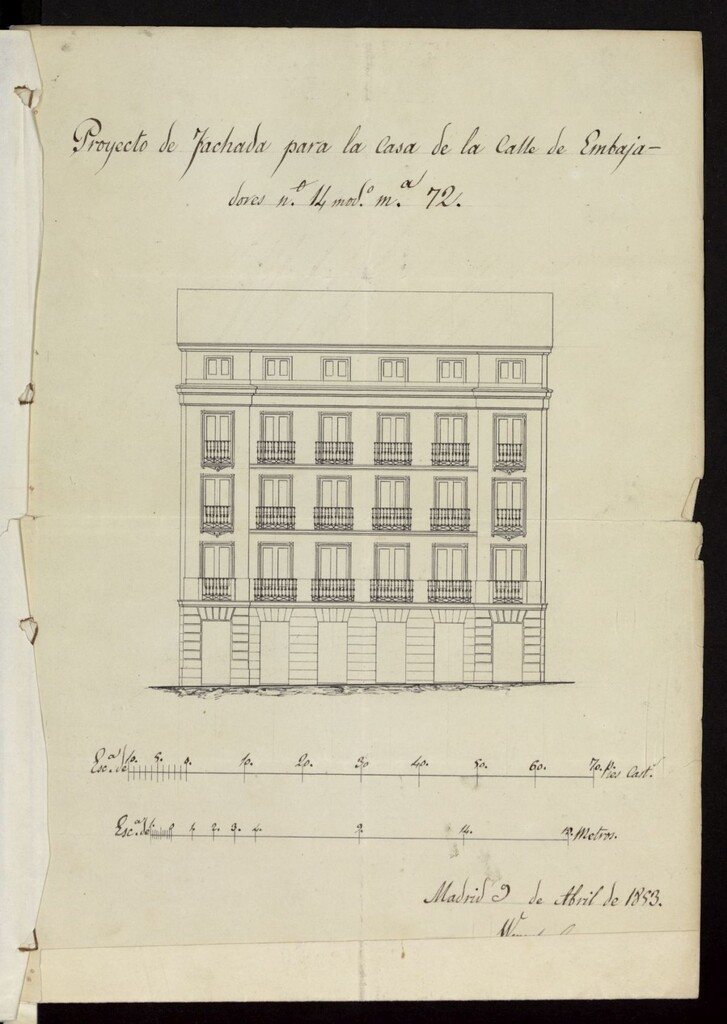 Proyecto de Fachada para la Casa de la Calle de Embaja-
dores n.º 14 mod.º m.ª 72.
Esc.ª de 10. 5. 0. 10. 20. 30 40. 50. 60. 70. Pies Cast.ˢ
Esc.ª de 1. 0 1. 2. 3. 4. 9. 14. 19. Metros.
Madrid 9 de Abril de 1853.